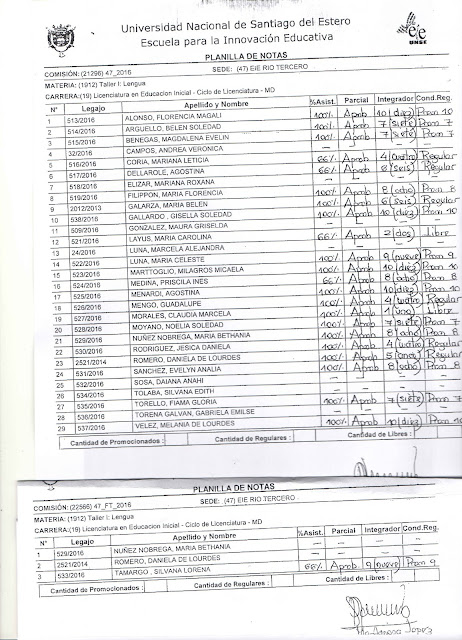 Universidad Nacional de Santiago del Estero
Escuela para la Innovación Educativa
UNSE
PLANILLA DE NOTAS
COMISIÓN: (21296) 47_2016 SEDE: (47) EIE RIO TERCERO
MATERIA: (1912) Taller I: Lengua
CARRERA:(19) Licenciatura en Educacion Inicial - Ciclo de Licenciatura - MD
N° Legajo Apellido y Nombre %Asist. Parcial Integrador Cond.Reg.
1 513/2016 ALONSO, FLORENCIA MAGALI 100% Aprob 10 (diez) Prom 10
2 514/2016 ARGUELLO, BELEN SOLEDAD 100% Aprob 7 (siete) Prom 7
3 515/2016 BENEGAS, MAGDALENA EVELIN 100% Aprob 7 (siete) Prom 7
4 32/2016 CAMPOS, ANDREA VERONICA — — — —
5 516/2016 CORIA, MARIANA LETICIA 66% Aprob 4 (cuatro) Regular
6 517/2016 DELLAROLE, AGOSTINA 66% Aprob 6 (seis) Regular
7 518/2016 ELIZAR, MARIANA ROXANA — — — —
8 519/2016 FILIPPON, MARIA FLORENCIA 100% Aprob 8 (ocho) Prom 8
9 2012/2013 GALARZA, MARIA BELEN 100% Aprob 6 (seis) Regular
10 538/2016 GALLARDO , GISELLA SOLEDAD 100% Aprob 10 (diez) Prom 10
11 509/2016 GONZALEZ, MAURA GRISELDA — — — —
12 521/2016 LAYUS, MARIA CAROLINA 66% Aprob 2 (dos) Libre
13 24/2016 LUNA, MARCELA ALEJANDRA — — — —
14 522/2016 LUNA, MARIA CELESTE 100% Aprob 9 (nueve) Prom 9
15 523/2016 MARTTOGLIO, MILAGROS MICAELA 100% Aprob 10 (diez) Prom 10
16 524/2016 MEDINA, PRISCILA INES 66% Aprob 8 (ocho) Prom 8
17 525/2016 MENARDI, AGOSTINA 100% Aprob 10 (diez) Prom 10
18 526/2016 MENGO, GUADALUPE 100% Aprob 4 (cuatro) Regular
19 527/2016 MORALES, CLAUDIA MARCELA 100% Aprob 1 (uno) Libre
20 528/2016 MOYANO, NOELIA SOLEDAD 100% Aprob 7 (siete) Prom 7
21 529/2016 NUÑEZ NOBREGA, MARIA BETHANIA 100% Aprob 8 (ocho) Prom 8
22 530/2016 RODRIGUEZ, JESICA DANIELA 100% Aprob 4 (cuatro) Regular
23 2521/2014 ROMERO, DANIELA DE LOURDES 100% Aprob 5 (cinco) Regular
24 531/2016 SANCHEZ, EVELYN ANALIA 100% Aprob 8 (ocho) Prom 8
25 532/2016 SOSA, DAIANA ANAHI — — — —
26 534/2016 TOLABA, SILVANA EDITH — — — —
27 535/2016 TORELLO, FIAMA GLORIA 100% Aprob 7 (siete) Prom 7
28 536/2016 TORENA GALVAN, GABRIELA EMILSE — — — —
29 537/2016 VELEZ, MELANIA DE LOURDES 100% Aprob 10 (diez) Prom 10
Cantidad de Promocionados : Cantidad de Regulares : Cantidad de Libres :
PLANILLA DE NOTAS
COMISIÓN: (22566) 47_FT_2016 SEDE: (47) EIE RIO TERCERO
MATERIA: (1912) Taller I: Lengua
CARRERA:(19) Licenciatura en Educacion Inicial - Ciclo de Licenciatura - MD
N° Legajo Apellido y Nombre %Asist. Parcial Integrador Cond.Reg.
1 529/2016 NUÑEZ NOBREGA, MARIA BETHANIA — — — —
2 2521/2014 ROMERO, DANIELA DE LOURDES — — — —
3 533/2016 TAMARGO , SILVANA LORENA 66% Aprob 9 (nueve) Prom 9
Cantidad de Promocionados : Cantidad de Regulares : Cantidad de Libres :
López